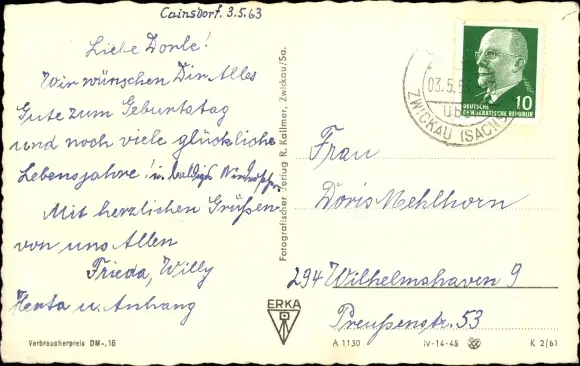 Cainsdorf. 3.5.63
Liebe Dorle!
Wir wünschen Dir Alles
Gute zum Geburtstag
und noch viele glückliche
Lebensjahre! in baldigen Wiedersehen
Mit herzlichen Grüßen
von uns Allen
Frieda, Willy
Herta u. Anhang
Verbraucherpreis DM -,16
Fotografischer Verlag R. Kallmer, Zwickau/Sa.
ERKA
03.5.63
ZWICKAU (SACHS
10
DEUTSCHE
DEMOKRATISCHE REPUBLIK
Frau
Doris Mehlhorn
294 Wilhelmshaven 9
Preußenstr. 53
A 1130
IV-14-45
K 2/61